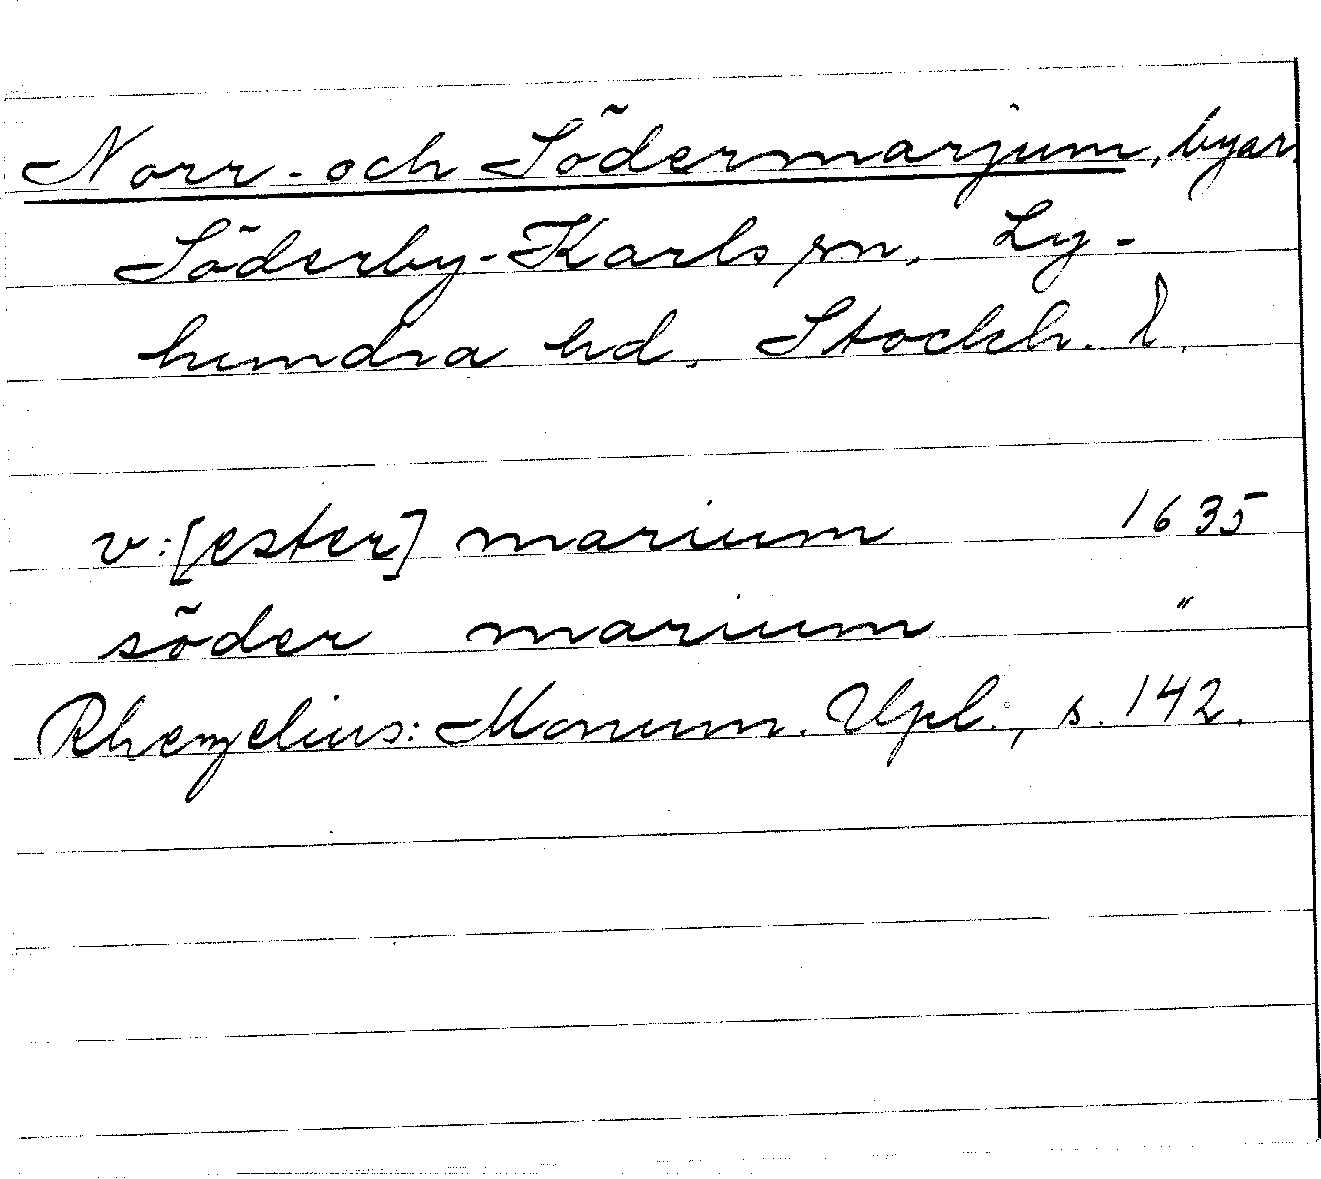 Norr- och Södermarjum, byar,
Söderby-Karls sn, Ly-
hundra hd, Stockh. l.
v:[ester] marium 1635
söder marium "
Rhezelius: Monum. Upl., s. 142.